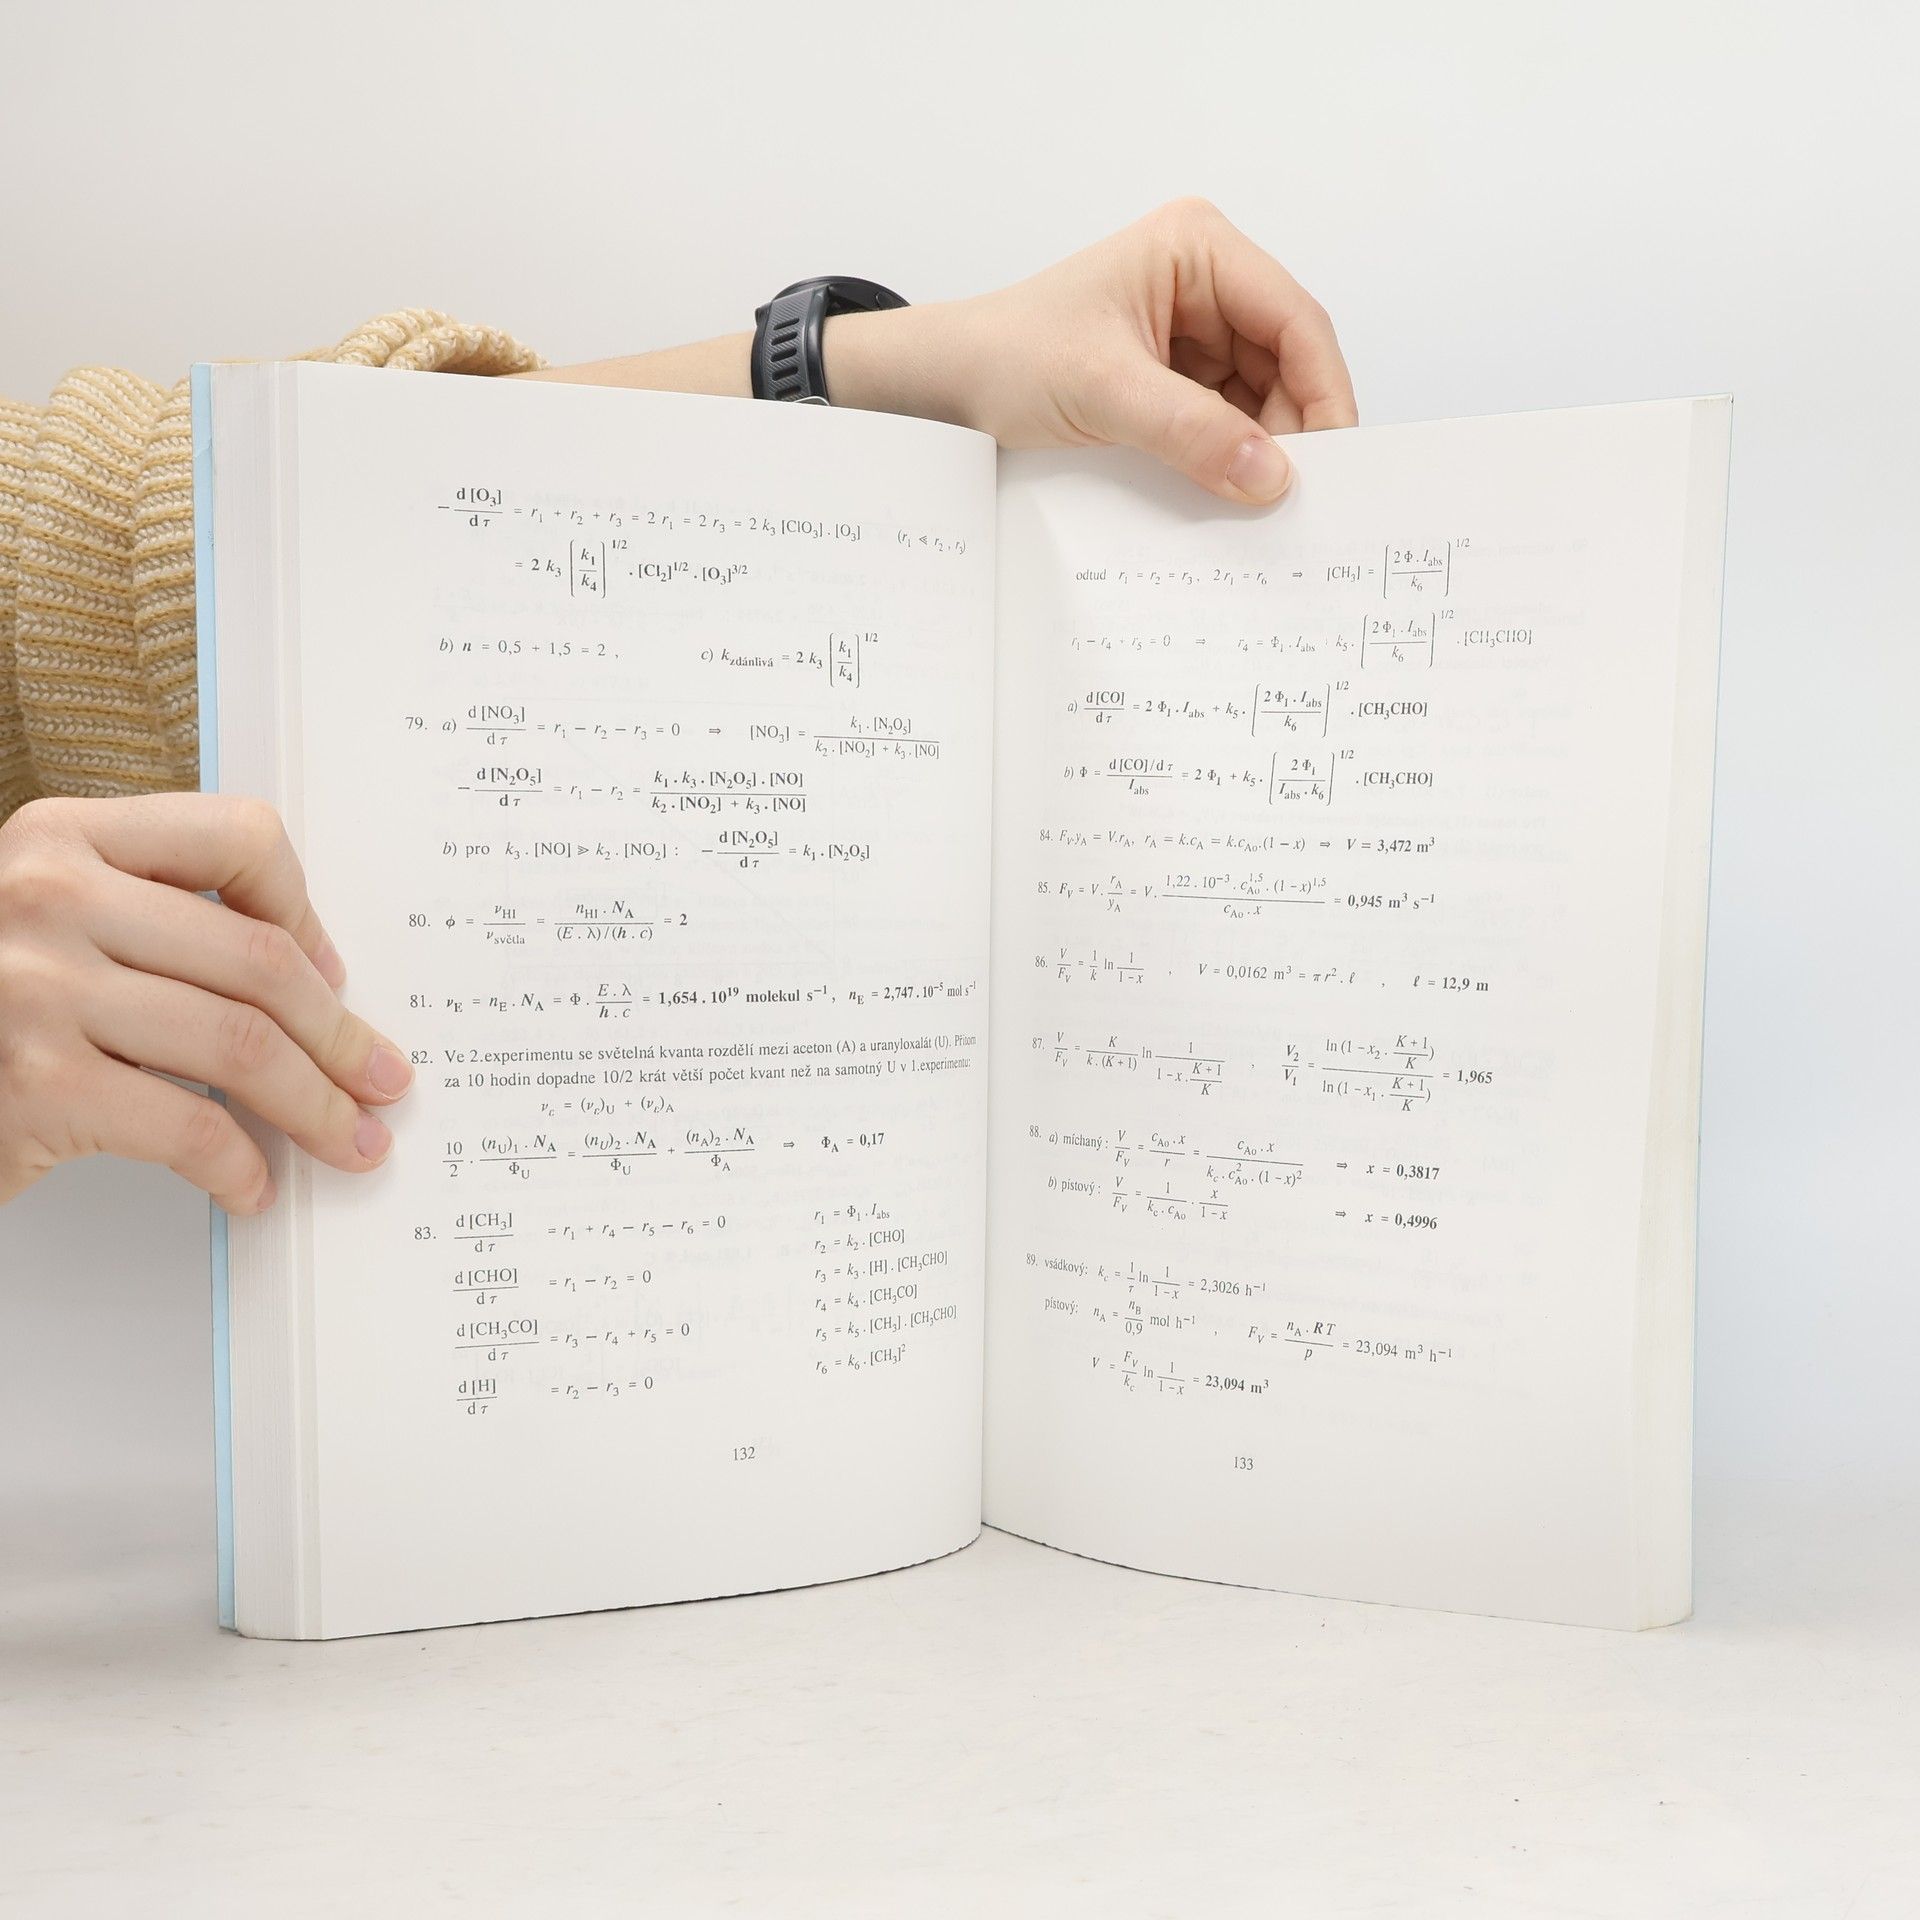 − d [O₃] / d τ = r₁ + r₂ + r₃ = 2 r₁ = 2 r₃ = 2 k₃ [ClO₃] . [O₃] (r₁ ≪ r₂ , r₃)
= 2 k₃ [k₁ / k₄]^1/2 . [Cl₂]^1/2 . [O₃]^3/2
b) n = 0,5 + 1,5 = 2 , c) k_zdánlivá = 2 k₃ [k₁ / k₄]^1/2
79. a) d [NO₃] / d τ = r₁ − r₂ − r₃ = 0 ⇒ [NO₃] = k₁ . [N₂O₅] / k₂ . [NO₂] + k₃ . [NO]
− d [N₂O₅] / d τ = r₁ − r₂ = k₁ . k₃ . [N₂O₅] . [NO] / k₂ . [NO₂] + k₃ . [NO]
b) pro k₃ . [NO] ≫ k₂ . [NO₂] : − d [N₂O₅] / d τ = k₁ . [N₂O₅]
80. ϕ = ν_HI / ν_světla = n_HI . N_A / (E . λ)/(h . c) = 2
81. ν_E = n_E . N_A = Φ . E . λ / h . c = 1,654 . 10¹⁹ molekul s⁻¹ , n_E = 2,747 . 10⁻⁵ mol s⁻¹
82. Ve 2.experimentu se světelná kvanta rozdělí mezi aceton (A) a uranyloxalát (U). Přitom
za 10 hodin dopadne 10/2 krát větší počet kvant než na samotný U v 1.experimentu:
ν_c = (ν_c)_U + (ν_c)_A
10 / 2 . (n_U)₁ . N_A / Φ_U = (n_U)₂ . N_A / Φ_U + (n_A)₂ . N_A / Φ_A ⇒ Φ_A = 0,17
83. d [CH₃] / d τ = r₁ + r₄ − r₅ − r₆ = 0
d [CHO] / d τ = r₁ − r₂ = 0
d [CH₃CO] / d τ = r₃ − r₄ + r₅ = 0
d [H] / d τ = r₂ − r₃ = 0
r₁ = Φ₁ . I_abs
r₂ = k₂ . [CHO]
r₃ = k₃ . [H] . [CH₃CHO]
r₄ = k₄ . [CH₃CO]
r₅ = k₅ . [CH₃] . [CH₃CHO]
r₆ = k₆ . [CH₃]²
132
odtud r₁ = r₂ = r₃ , 2 r₁ = r₆ ⇒ [CH₃] = [2 Φ . I_abs / k₆]^1/2
r₁ − r₄ + r₅ = 0 ⇒ r₄ = Φ₁ . I_abs + k₅ . [2 Φ₁ . I_abs / k₆]^1/2 . [CH₃CHO]
a) d [CO] / d τ = 2 Φ₁ . I_abs + k₅ . [2 Φ₁ . I_abs / k₆]^1/2 . [CH₃CHO]
b) Φ = d [CO] / d τ / I_abs = 2 Φ₁ + k₅ . [2 Φ₁ / I_abs . k₆]^1/2 . [CH₃CHO]
84. F_V.y_A = V.r_A, r_A = k.c_A = k.c_Ao.(1 − x) ⇒ V = 3,472 m³
85. F_V = V . r_A / y_A = V . 1,22 . 10⁻³ . c_Ao^1,5 . (1 − x)^1,5 / c_Ao . x = 0,945 m³ s⁻¹
86. V / F_V = 1 / k ln 1 / 1 − x , V = 0,0162 m³ = π r² . ℓ , ℓ = 12,9 m
87. V / F_V = K / k . (K + 1) ln 1 / 1 − x . K + 1 / K , V₂ / V₁ = ln (1 − x₂ . K + 1 / K) / ln (1 − x₁ . K + 1 / K) = 1,965
88. a) míchaný : V / F_V = c_Ao . x / r = c_Ao . x / k_c . c²_Ao . (1 − x)² ⇒ x = 0,3817
b) pístový : V / F_V = 1 / k_c . c_Ao . x / 1 − x ⇒ x = 0,4996
89. vsádkový: k_c = 1 / τ ln 1 / 1 − x = 2,3026 h⁻¹
pístový: n_A = n_B / 0,9 mol h⁻¹ , F_V = n_A . RT / p = 23,094 m³ h⁻¹
V = F_V / k_c ln 1 / 1 − x = 23,094 m³
133